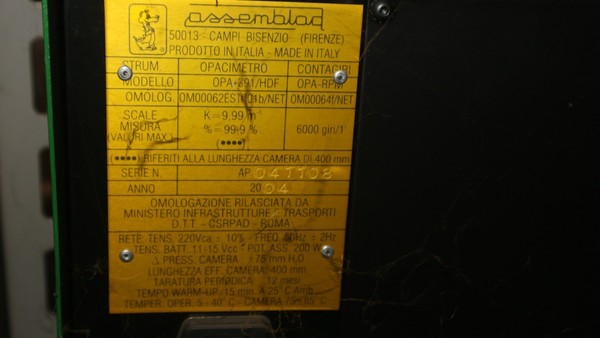 assemblad
50013 - CAMPI BISENZIO - (FIRENZE)
PRODOTTO IN ITALIA - MADE IN ITALY
STRUM OPACIMETRO CONTAGIRI
MODELLO OPA-RPM
OMOLOG. OM00064f/NET
SCALE K=9.99/m
MISURA %=99.9 % 6000 giri/1'
(VALORI MAX.) (••••)
(••••) RIFERITI ALLA LUNGHEZZA CAMERA DI 400 mm
SERIE N. AP.
ANNO 20 04
OMOLOGAZIONE RILASCIATA DA
MINISTERO INFRASTRUTTURE E TRASPORTI
D.T.T. - CSRPAD - ROMA
RETE: TENS. 220Vca ± 10% - FREQ. 50Hz ± 2Hz
TENS. BATT. 11-15 Vcc - POT. ASS. 200 W
Δ PRESS. CAMERA : 75 mm H₂O
LUNGHEZZA EFF. CAMERA: 400 mm
TARATURA PERIODICA : 12 mesi
TEMPO WARM-UP: 15 min. A 25°C Amb.
TEMPER. OPER. 5 - 40° C - CAMERA 75 - 85° C